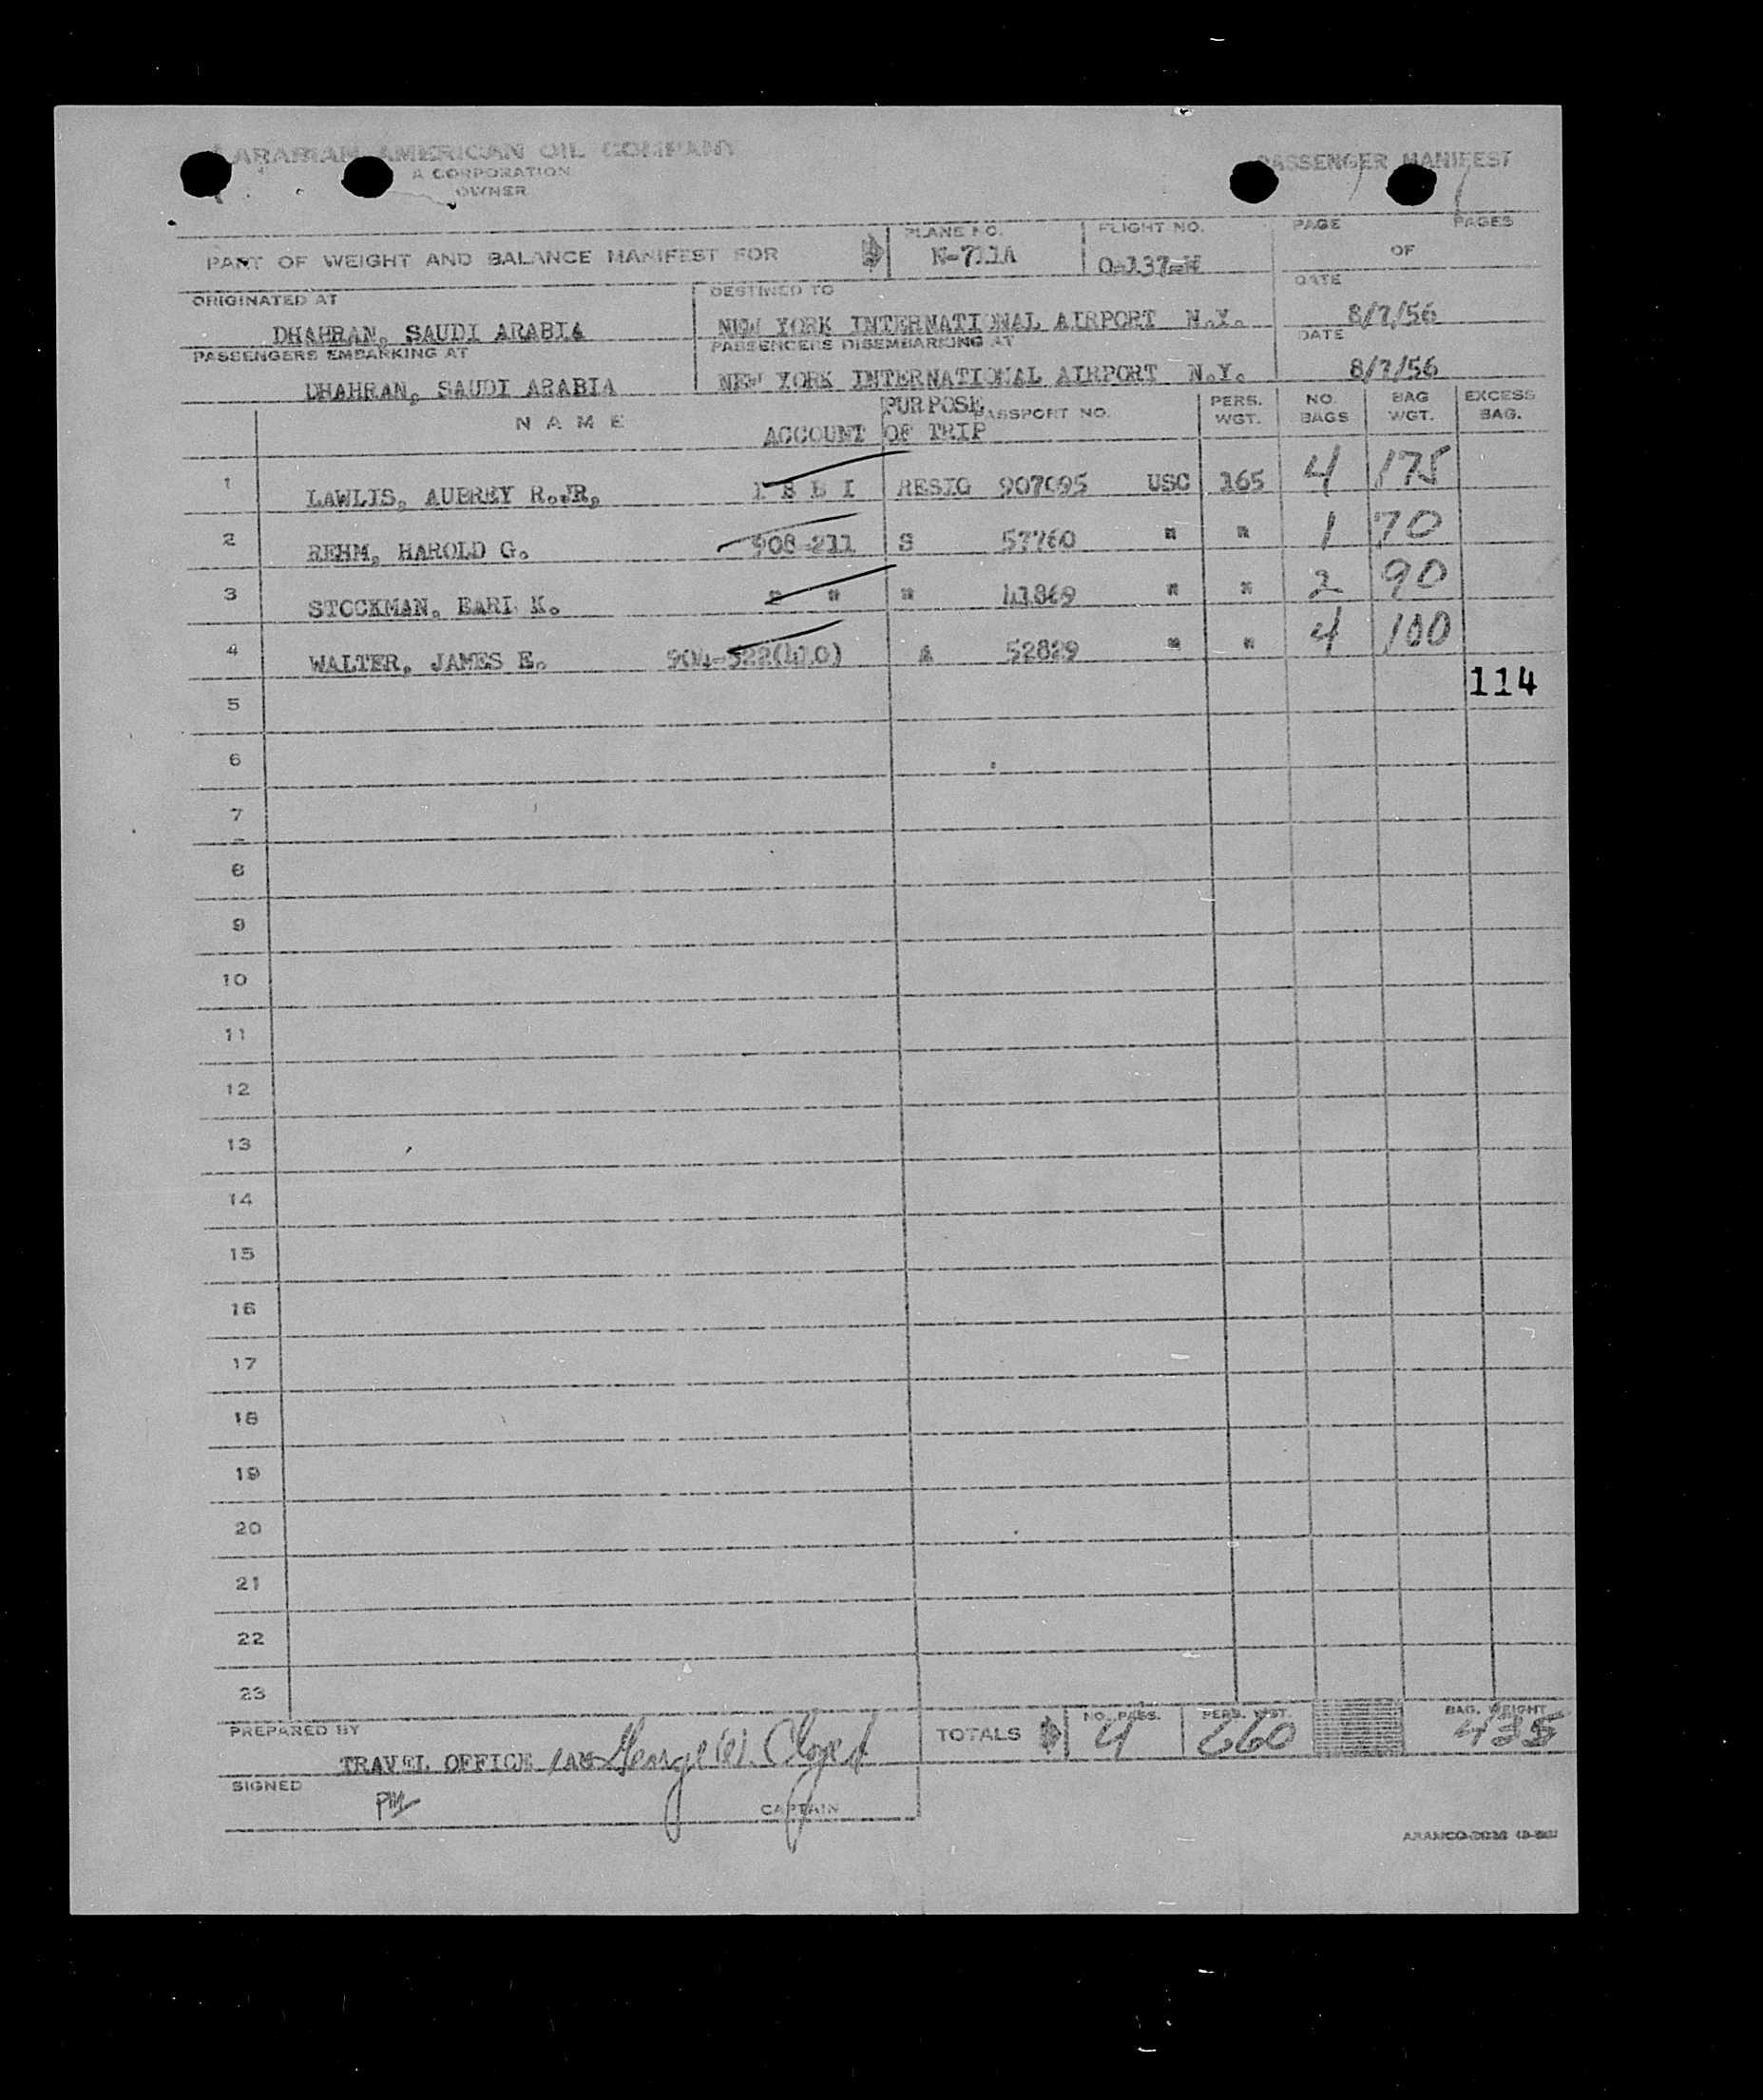 ARABIAN AMERICAN OIL COMPANY
A CORPORATION
OWNER
PASSENGER MANIFEST
PART OF WEIGHT AND BALANCE MANIFEST FOR
PLANE NO.
N-711A
FLIGHT NO.
O-137-W
PAGE 1 OF 1 PAGES
ORIGINATED AT
DHAHRAN, SAUDI ARABIA
DESTINED TO
NEW YORK INTERNATIONAL AIRPORT N.Y.
DATE
8/7/56
PASSENGERS EMBARKING AT
DHAHRAN, SAUDI ARABIA
PASSENGERS DISEMBARKING AT
NEW YORK INTERNATIONAL AIRPORT N.Y.
DATE
8/7/56
NAME ACCOUNT PURPOSE OF TRIP PASSPORT NO. PERS. WGT. NO. BAGS BAG WGT. EXCESS BAG.
1 LAWLIS, AUBREY R.JR, I B E I RESIG 907095 USC 165 4 175
2 REHM, HAROLD G. 908-211 S 57760 " " 1 70
3 STOCKMAN, EARL K. " " " 41869 " " 2 90
4 WALTER, JAMES E. 904-322(410) A 52829 " " 4 100
114
5
6
7
8
9
10
11
12
13
14
15
16
17
18
19
20
21
22
23
PREPARED BY
TRAVEL OFFICE
TOTALS
NO. PASS.
4
PERS. WGT.
660
BAG. WEIGHT
435
SIGNED
PM
CAPTAIN